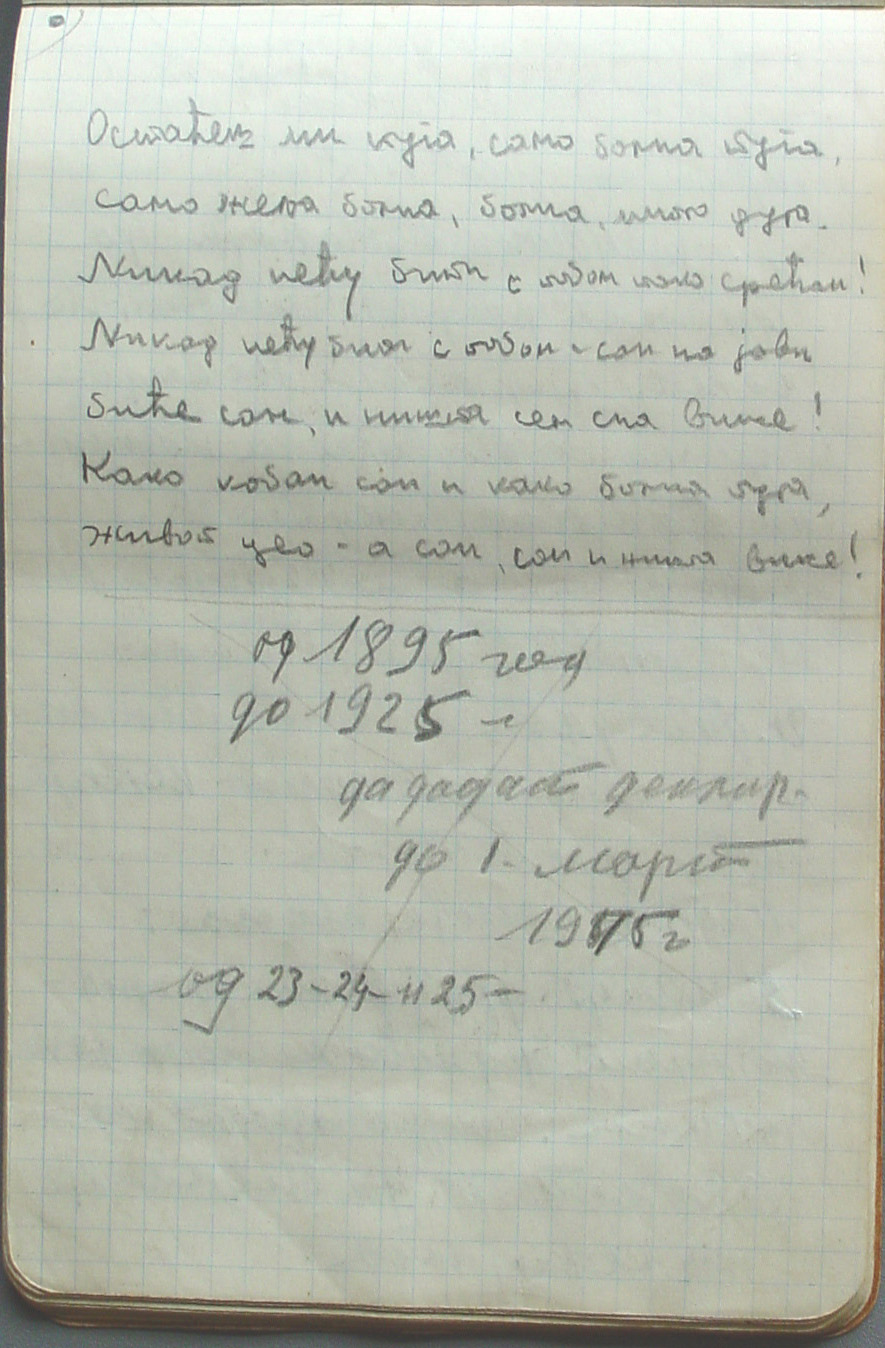 Остаћеш ми туга, само болна туга,
само жеља болна, болна, много дуга.
Никад нећу бити с тобом тако срећан!
Никад нећу бити с тобом - сан на јави
биће сан, и ништа сем сна више!
Како кобан сан и како болна туга,
живот цео - а сан, сан и ништа више!
од 1895 год
до 1925 -г
да дадат деклар.
до 1. март
1975 г
од 23-24-и 25-